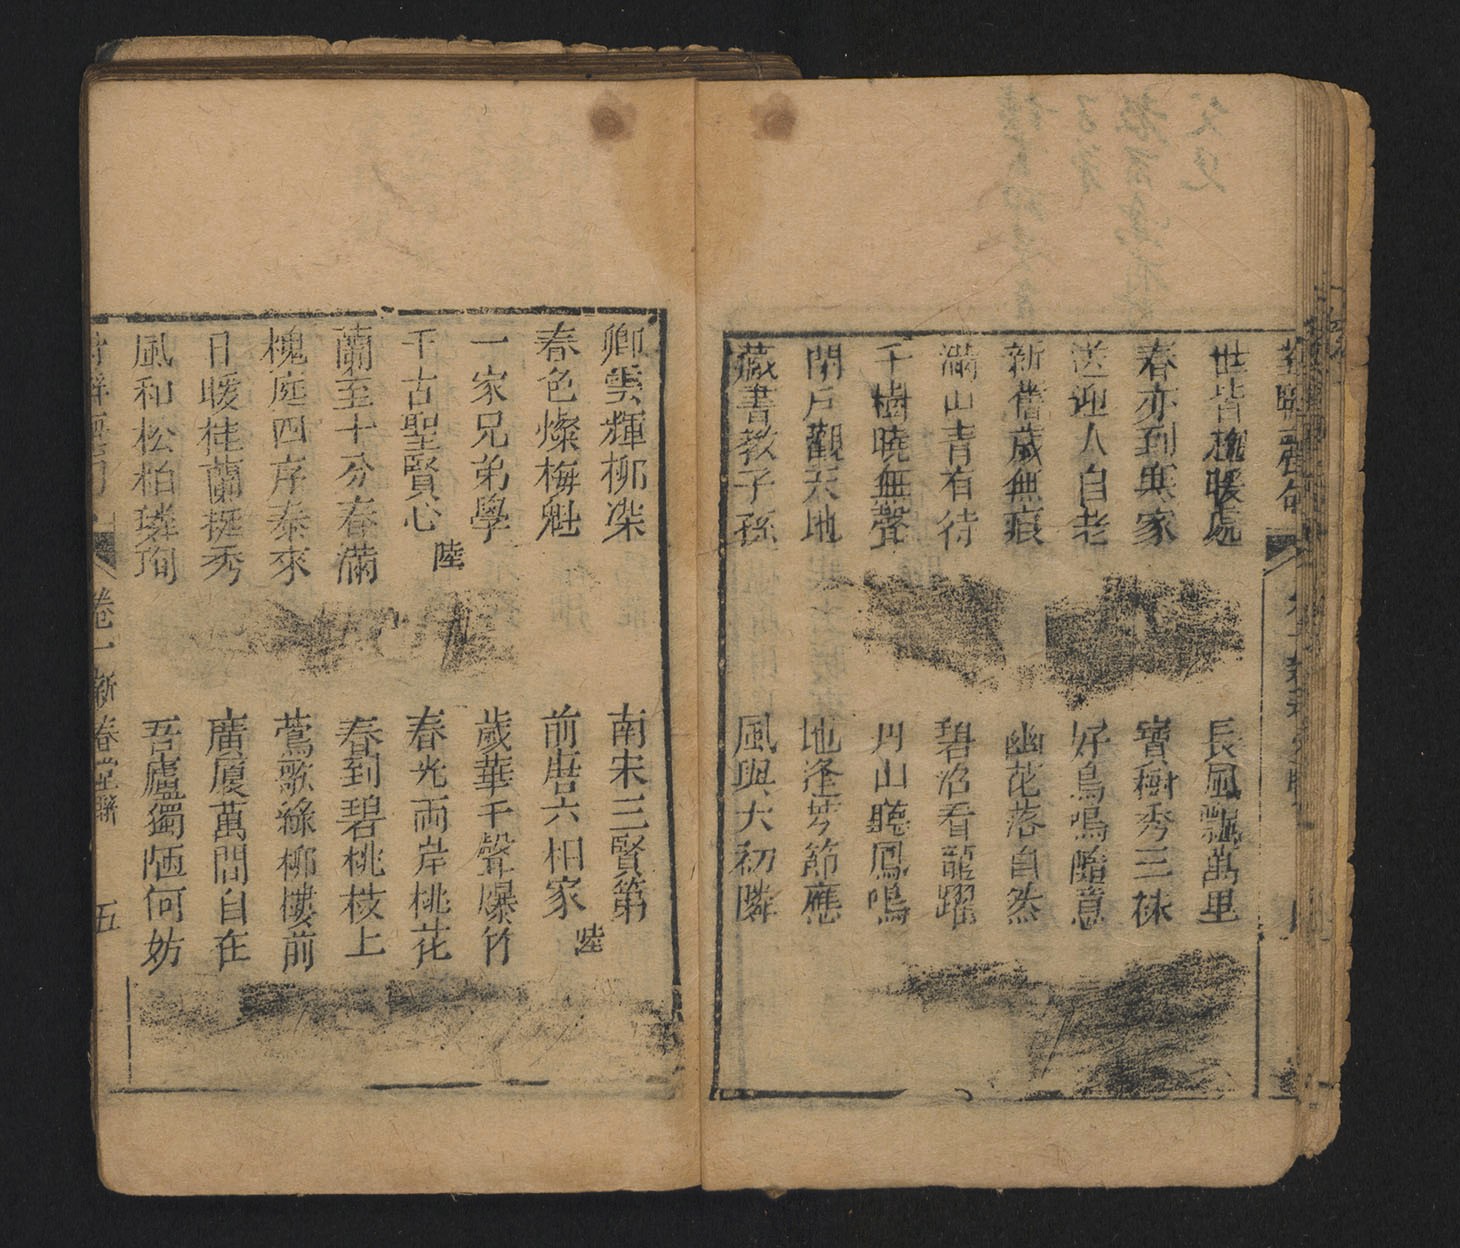 世皆趨暖處
長風飄萬里
春亦到寒家
寶樹秀三株
送迎人自老
好鳥鳴隨意
新舊歲無痕
幽花落自然
滿山青有待
碧沼看龍躍
千樹曉無聲
丹山聽鳳鳴
閉戶觀天地
地逢芳節應
藏書教子孫
風與大初隣
卿雲輝柳㭍
南宋三賢第
春色燦梅魁
前唐六相家 陸
一家兄弟學
歲華千聲爆竹
千古聖賢心 陸
春光兩岸桃花
蘭至十分春滿
春到碧桃枝上
槐庭四序泰來
鶯歌綠柳樓前
日暖桂蘭挺秀
廣厦萬間自在
風和松柏璘珣
吾廬獨陋何妨
卷一 新春堂聯 五